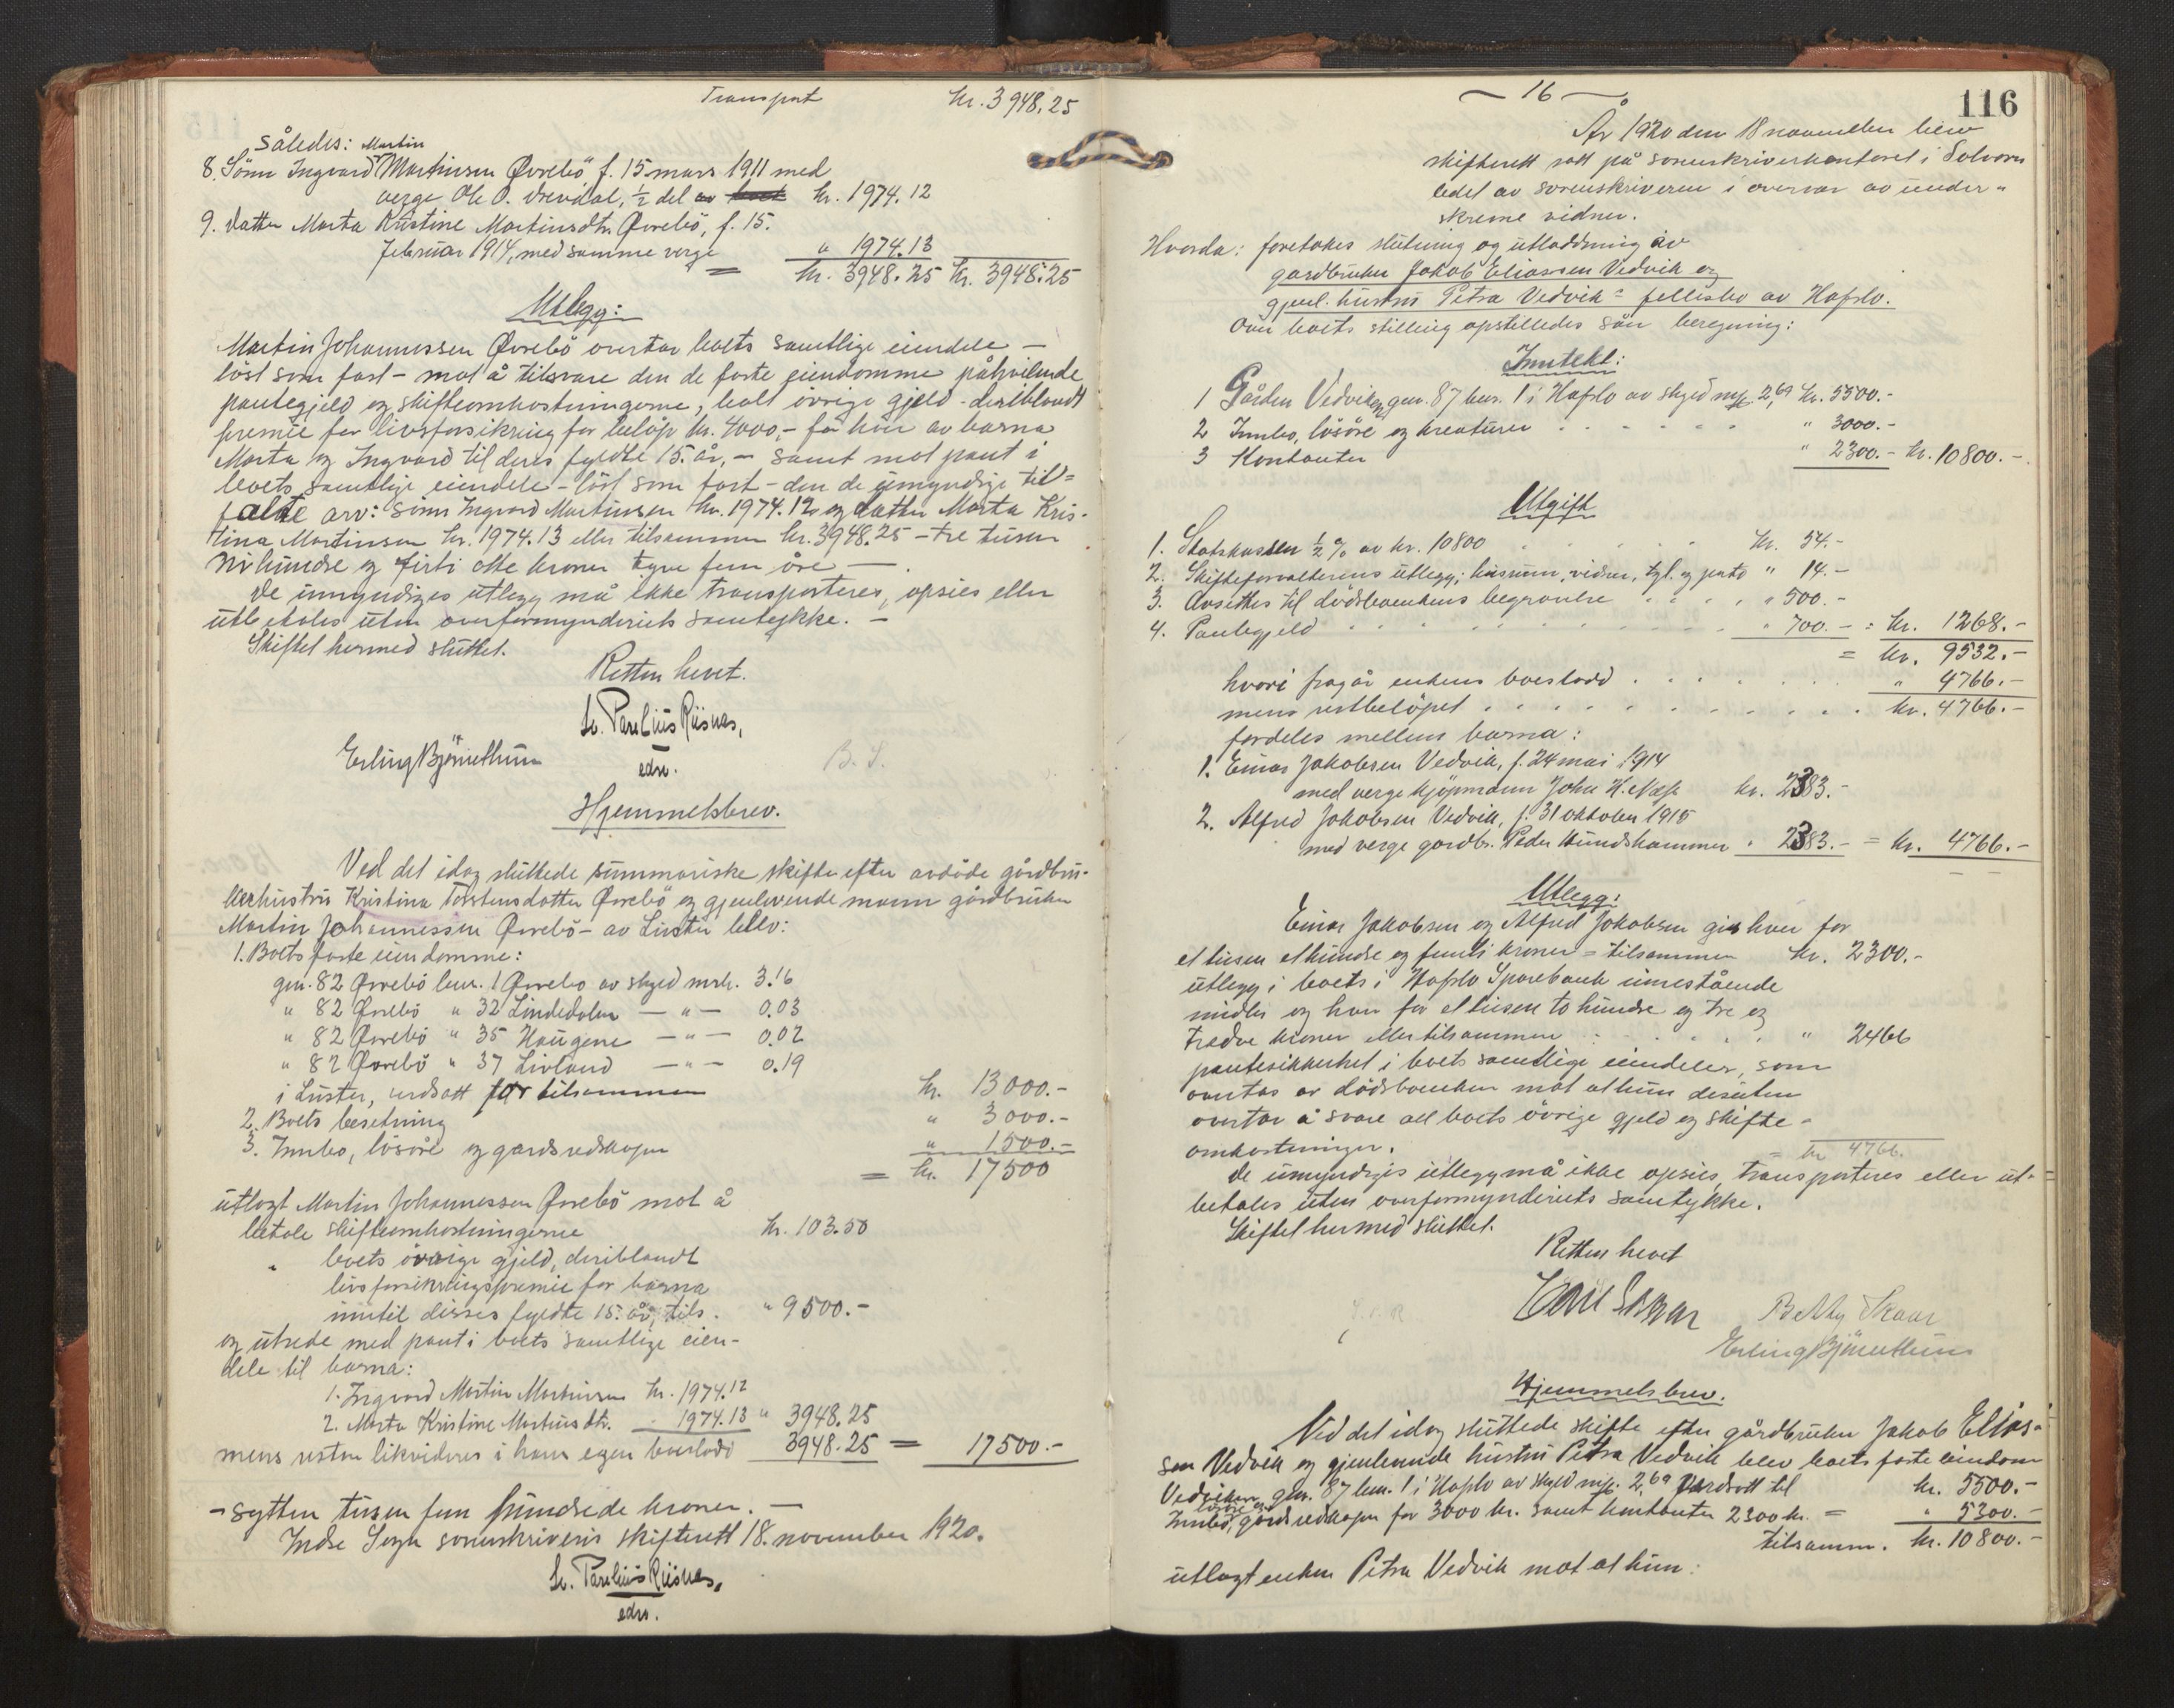 Transport kr. 3948.25
Således: Martin
8. Sönn Ingvard Martinsen Øvrebö f. 15 mars 1911 med
verge Ole O. Drevdal, 1/2 del av kr. 1974.12
9. datter Marta Kristine Martinsdtr. Øvrebö, f. 15.
februar 1914, med samme verge " 1974.13
= kr. 3948.25 kr. 3948.25
Utlegg:
Martin Johannessen Øvrebö overtar boets samtlige eiendele –
löst som fast – mot å tilsvare den de faste eiendomme påhvilende
pantegjeld og skifteomkostningerne, boets övrige gjeld – deriblandt
premie for livsforsikring for belöp kr. 4000,– for hver av barna
Marta og Ingvard til deres fyldte 15. år, – samt mot pant i
boets samtlige eiendele – löst som fast – den de umyndige til=
faldte arv: sönn Ingvard Martinsen kr. 1974.12 og datter Marta Kris-
tina Martinsen kr. 1974.13 eller tilsammen kr. 3948.25 – tre tusen
nihundre og firti otte kroner tyve fem öre –
De umyndiges utlegg må ikke transporteres, opsies eller
utbetales uten overformynderiets samtykke. –
Skiftet hermed sluttet.
Retten hevet.
Chr. Parelius Riisnæs,
edsv.
Erling Bjørnethun
B. S.
Hjemmelsbrev.
Ved det idag sluttede summariske skifte efter avdöde gårdbru-
kerhustru Kristina Torstensdotter Øvrebö og gjenlevende mann gårdbruker
Martin Johannessen Øvrebö – av Luster blev:
1. Boets faste eiendomme:
gnr. 82 Øvrebö bnr. 1 Øvrebo av skyld mrk. 3.16
" 82 Øvrebö " 32 Lindedalen – " – 0.03
" 82 Øvrebö " 35 Haugene – " – 0.02
" 82 Øvrebö " 37 Livland – " – 0.19
i Luster, verdsatt for tilsammen kr. 13000.-
2. Boets besetning " 3000.-
3. Innbo, lösöre og gardsredskaper " 1500.-
= kr. 17500
utlagt Martin Johannessen Øvrebö mot å
betale skifteomkostningerne kr. 103.50
" boets övrige gjeld, deriblandt
livsforsikringspremie for barna
inntil disses fyldte 15. år, tils. " 9500.–
og utrede med pant i boets samtlige eien-
dele til barna:
1. Ingvard Martin Martinsen kr. 1974.12
2. Marta Kristine Martinsdtr. " 1974.13 " 3948.25
mens resten likvideres i hans egen boeslodd 3948.25 = 17500.-
– sytten tusen fem hundrede kroner. –
Indre Sogn sorenskriveris skifterett 18. november 1920.
Chr. Parelius Riisnæs,
edsv.
– 16 –
116
År 1920 den 18 november blev
skifterett satt på sorenskriverkontoret i Solvorn
ledet av sorenskriveren i overvær av under-
skrevne vidner.
Hvorda: foretokes slutning og utloddning av
gardbruker Jakob Eliassen Vedvik og
gjenl. hustru Petra Vedvik's fellesbo av Hafslo.
Over boets stilling opstilledes sån beregning:
Inntekt:
1 Gården Vedviken, gnr. 87 bnr. 1 i Hafslo av skyld mrk. 2,69 kr. 5500.-
2 Innbo, lösöre og kreaturer " 3000.-
3 Kontanter " 2300.- kr. 10800.-
Utgift
1. Statskassen 1/2 % av kr. 10800 kr. 54.-
2. Skifteforvalterens utlegg; husrum, vidner, tgl. og porto " 14.-
3. Avsettes til dödsboenkens begravelse " 500.-
4. Pantegjeld " 700.- = kr. 1268.-
= kr. 9532.-
hvori fragår enkens boeslodd " 4766.-
mens restbelöpet kr. 4766.-
fordeles mellem barna:
1. Einar Jakobsen Vedvik, f. 24 mai 1914
med verge kjöpmann John H. Næss kr. 2383.-
2. Alfred Jakobsen Vedvik, f. 31 oktober 1915
med verge gardbr. Peder Hundshammer " 2383.- = kr. 4766.-
Utlegg:
Einar Jakobsen og Alfred Jakobsen gis hver for
et tusen et hundre og femti kroner = tilsammen kr. 2300.-
utlegg i boets i Hafslo Sparebank innestående
midler og hver for et tusen to hundre og tre og
tredve kroner eller tilsammen " 2466
pantesikkerhet i boets samtlige eiendeler, som
overtas av dödsboenken mot at hun desuten
overtar å svare all boets övrige gjeld og skifte-
omkostninger.
= kr 4766.
De umyndiges utlegg må ikke opsies, transporteres eller ut-
betales uten overformynderiets samtykke.
Skiftet hermed sluttet.
Retten hevet
Betty Skaar
Erling Bjørnethun
Hjemmelsbrev.
Ved det idag sluttede skifte efter gårdbruker Jakob Elias-
sen Vedvik og gjenlevende hustru Petra Vedvik blev boets faste eiendom
Vedviken gnr. 87 bnr. 1 i Hafslo av skyld mrk. 2,69 verdsatt til kr. 5500.-
lösöre og
Innbo, gårdsredskaper for 3000 kr. samt kontanter 2300 kr. = " 5300.-
tilsamm. kr. 10800.-
utlagt enken Petra Vedvik mot at hun: